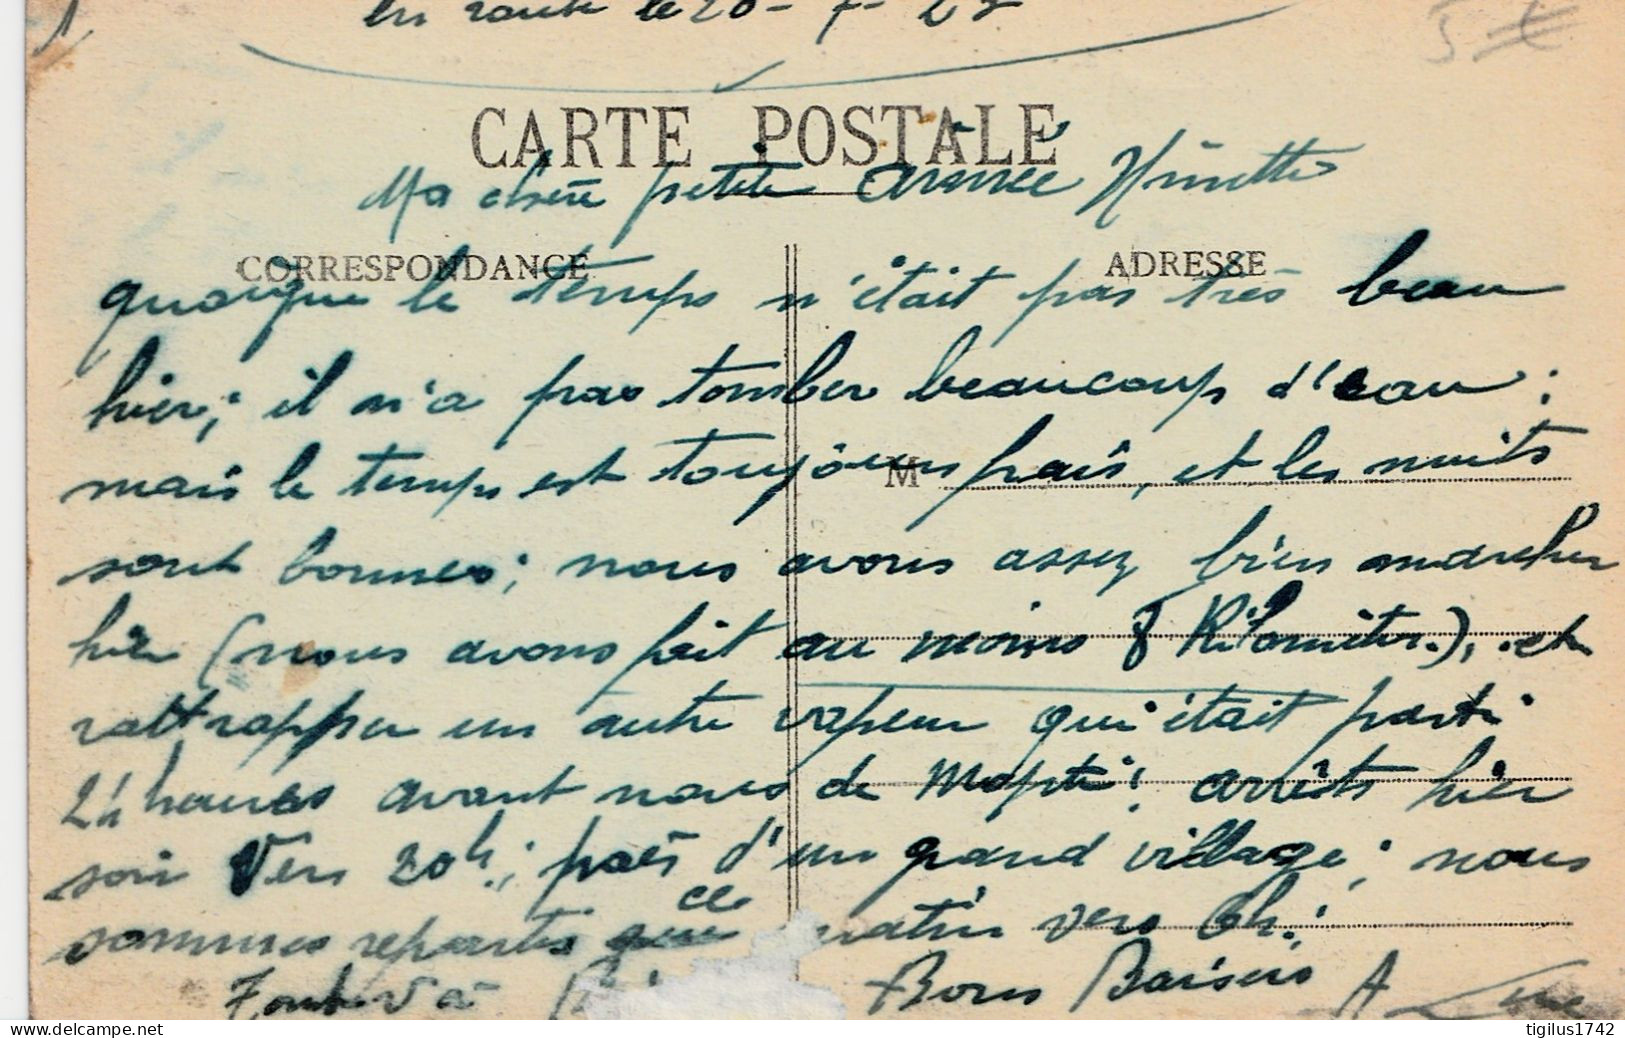 en route le 20-7-27
CARTE POSTALE
Ma chère petite aimée Ninette
CORRESPONDANCE
ADRESSE
quoique le temps n'était pas très beau
hier; il n'a pas tomber beaucoup d'eau:
mais le temps est toujours frais, et les nuits
M
sont bonnes; nous avons assez bien marcher
hier (nous avons fait au moins 8 Kilomètres.), et
rattrapper un autre vapeur qui était parti
24 heures avant nous de Mopti; arrêts hier
soir vers 20h.; près d'un grand village; nous
sommes repartis que ce matin vers 6h.;
Tout va Bons Baisers A
tigilus1742